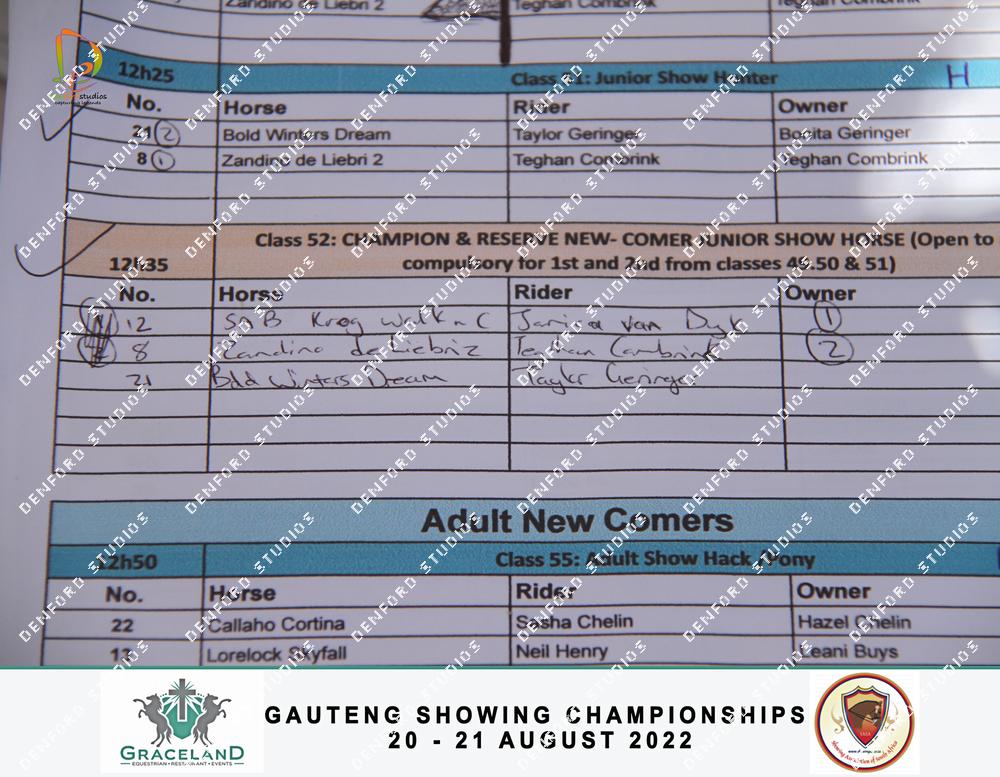 Zandino de Liebri 2 Teghan Combrink Teghan Combrink
12h25 Class 51: Junior Show Hunter H
No. Horse Rider Owner
21 2 Bold Winters Dream Taylor Geringer Bonita Geringer
8 1 Zandino de Liebri 2 Teghan Combrink Teghan Combrink
Class 52: CHAMPION & RESERVE NEW- COMER JUNIOR SHOW HORSE (Open to
12h35 compulsory for 1st and 2nd from classes 49.50 & 51)
No. Horse Rider Owner
12 van Dyk 1
8 Zandino de Liebri 2 Teghan Combrink 2
21 Bold Winters Dream Taylor Geringer
Adult New Comers
12h50 Class 55: Adult Show Hack /Pony
No. Horse Rider Owner
22 Callaho Cortina Sasha Chelin Hazel Chelin
13 Lorelock Skyfall Neil Henry Leani Buys
studios
capturing legends
DENFORD STUDIOS
GRACELAND
EQUESTRIAN • RESTAURANT • EVENTS
GAUTENG SHOWING CHAMPIONSHIPS
20 - 21 AUGUST 2022
Showing Association of South Africa